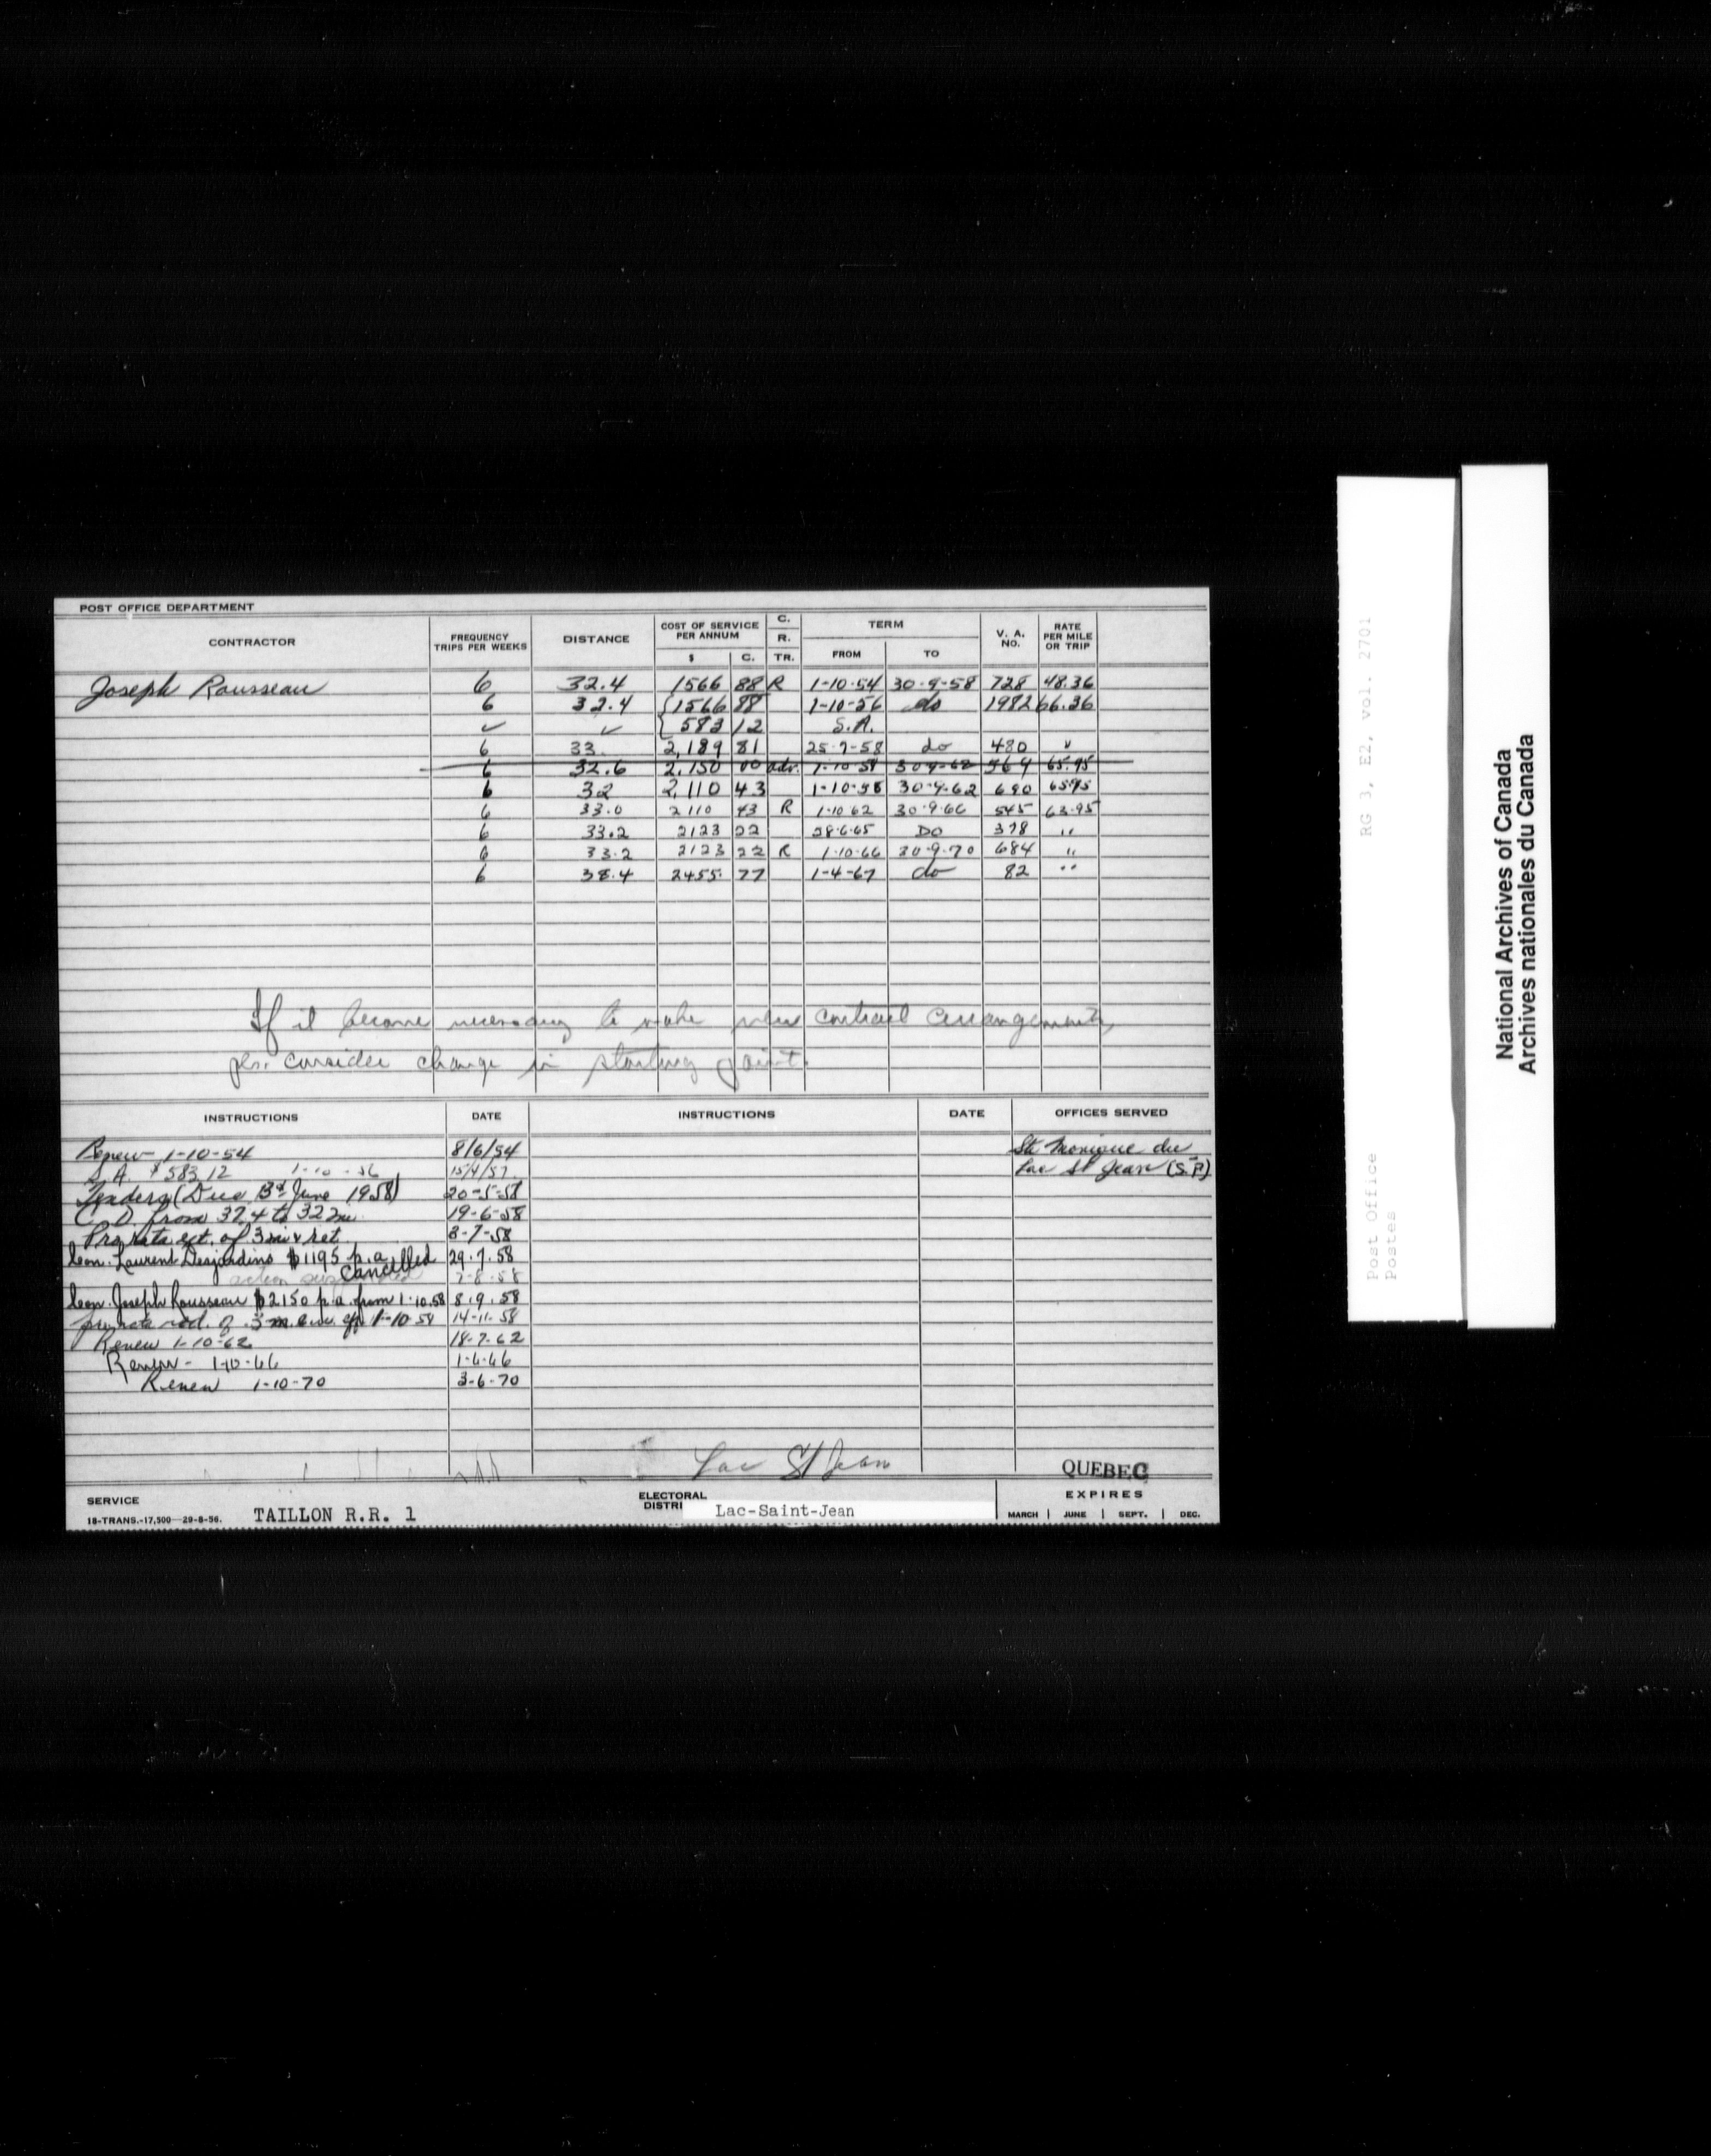 POST OFFICE DEPARTMENT
CONTRACTOR FREQUENCY TRIPS PER WEEKS DISTANCE COST OF SERVICE PER ANNUM $ C. C. R. TR. TERM FROM TO V. A. NO. RATE PER MILE OR TRIP
Joseph Rousseau 6 32.4 1566 88 R 1-10-54 30-9-58 728 48.36
6 32.4 {1566 88 1-10-56 do 1982 66.36
✓ ✓ {583 12 S.A.
6 33 2,189 81 25-7-58 do 480 ✓
6 32.6 2,150 00 adv. 1-10-58 30-9-62 564 65.95
6 32 2,110 43 1-10-58 30-9-62 690 65.95
6 33.0 2110 43 R 1-10-62 30-9-66 545 63.95
6 33.2 2123 22 28-6-65 Do 378 "
6 33.2 2123 22 R 1-10-66 30-9-70 684 "
6 38.4 2455 77 1-4-67 do 82 "
If it become necessary to make new contract arrangements,
pls. consider change in starting point.
INSTRUCTIONS DATE INSTRUCTIONS DATE OFFICES SERVED
Renew 1-10-54 8/6/54 Ste Monique du
S.A. $583.12 1-10-56 15/4/57 Lac St Jean (S.P)
Tenders (Due 3rd June 1958) 20-5-58
C. D. from 32.4 to 32 m. 19-6-58
Pro rata ext. of 3 mi & ret. 3-7-58
Con. Laurent Desjardins $1195 p.a. Cancelled 29.7.58
action 7-8-58
Con. Joseph Rousseau $2150 p.a. from 1.10.58 8.9.58
pro rata red. of .3 m. eff 1-10-58 14-11-58
Renew 1-10-62 18-7-62
Renew - 1-10-66 1-6-66
Renew 1-10-70 3-6-70
Lac St Jean
QUEBEC
SERVICE TAILLON R.R. 1 ELECTORAL DISTRI Lac-Saint-Jean EXPIRES
18-TRANS.-17,500—29-8-56. MARCH | JUNE | SEPT. | DEC.
RG 3, E2, vol. 2701
Post Office
Postes
National Archives of Canada
Archives nationales du Canada